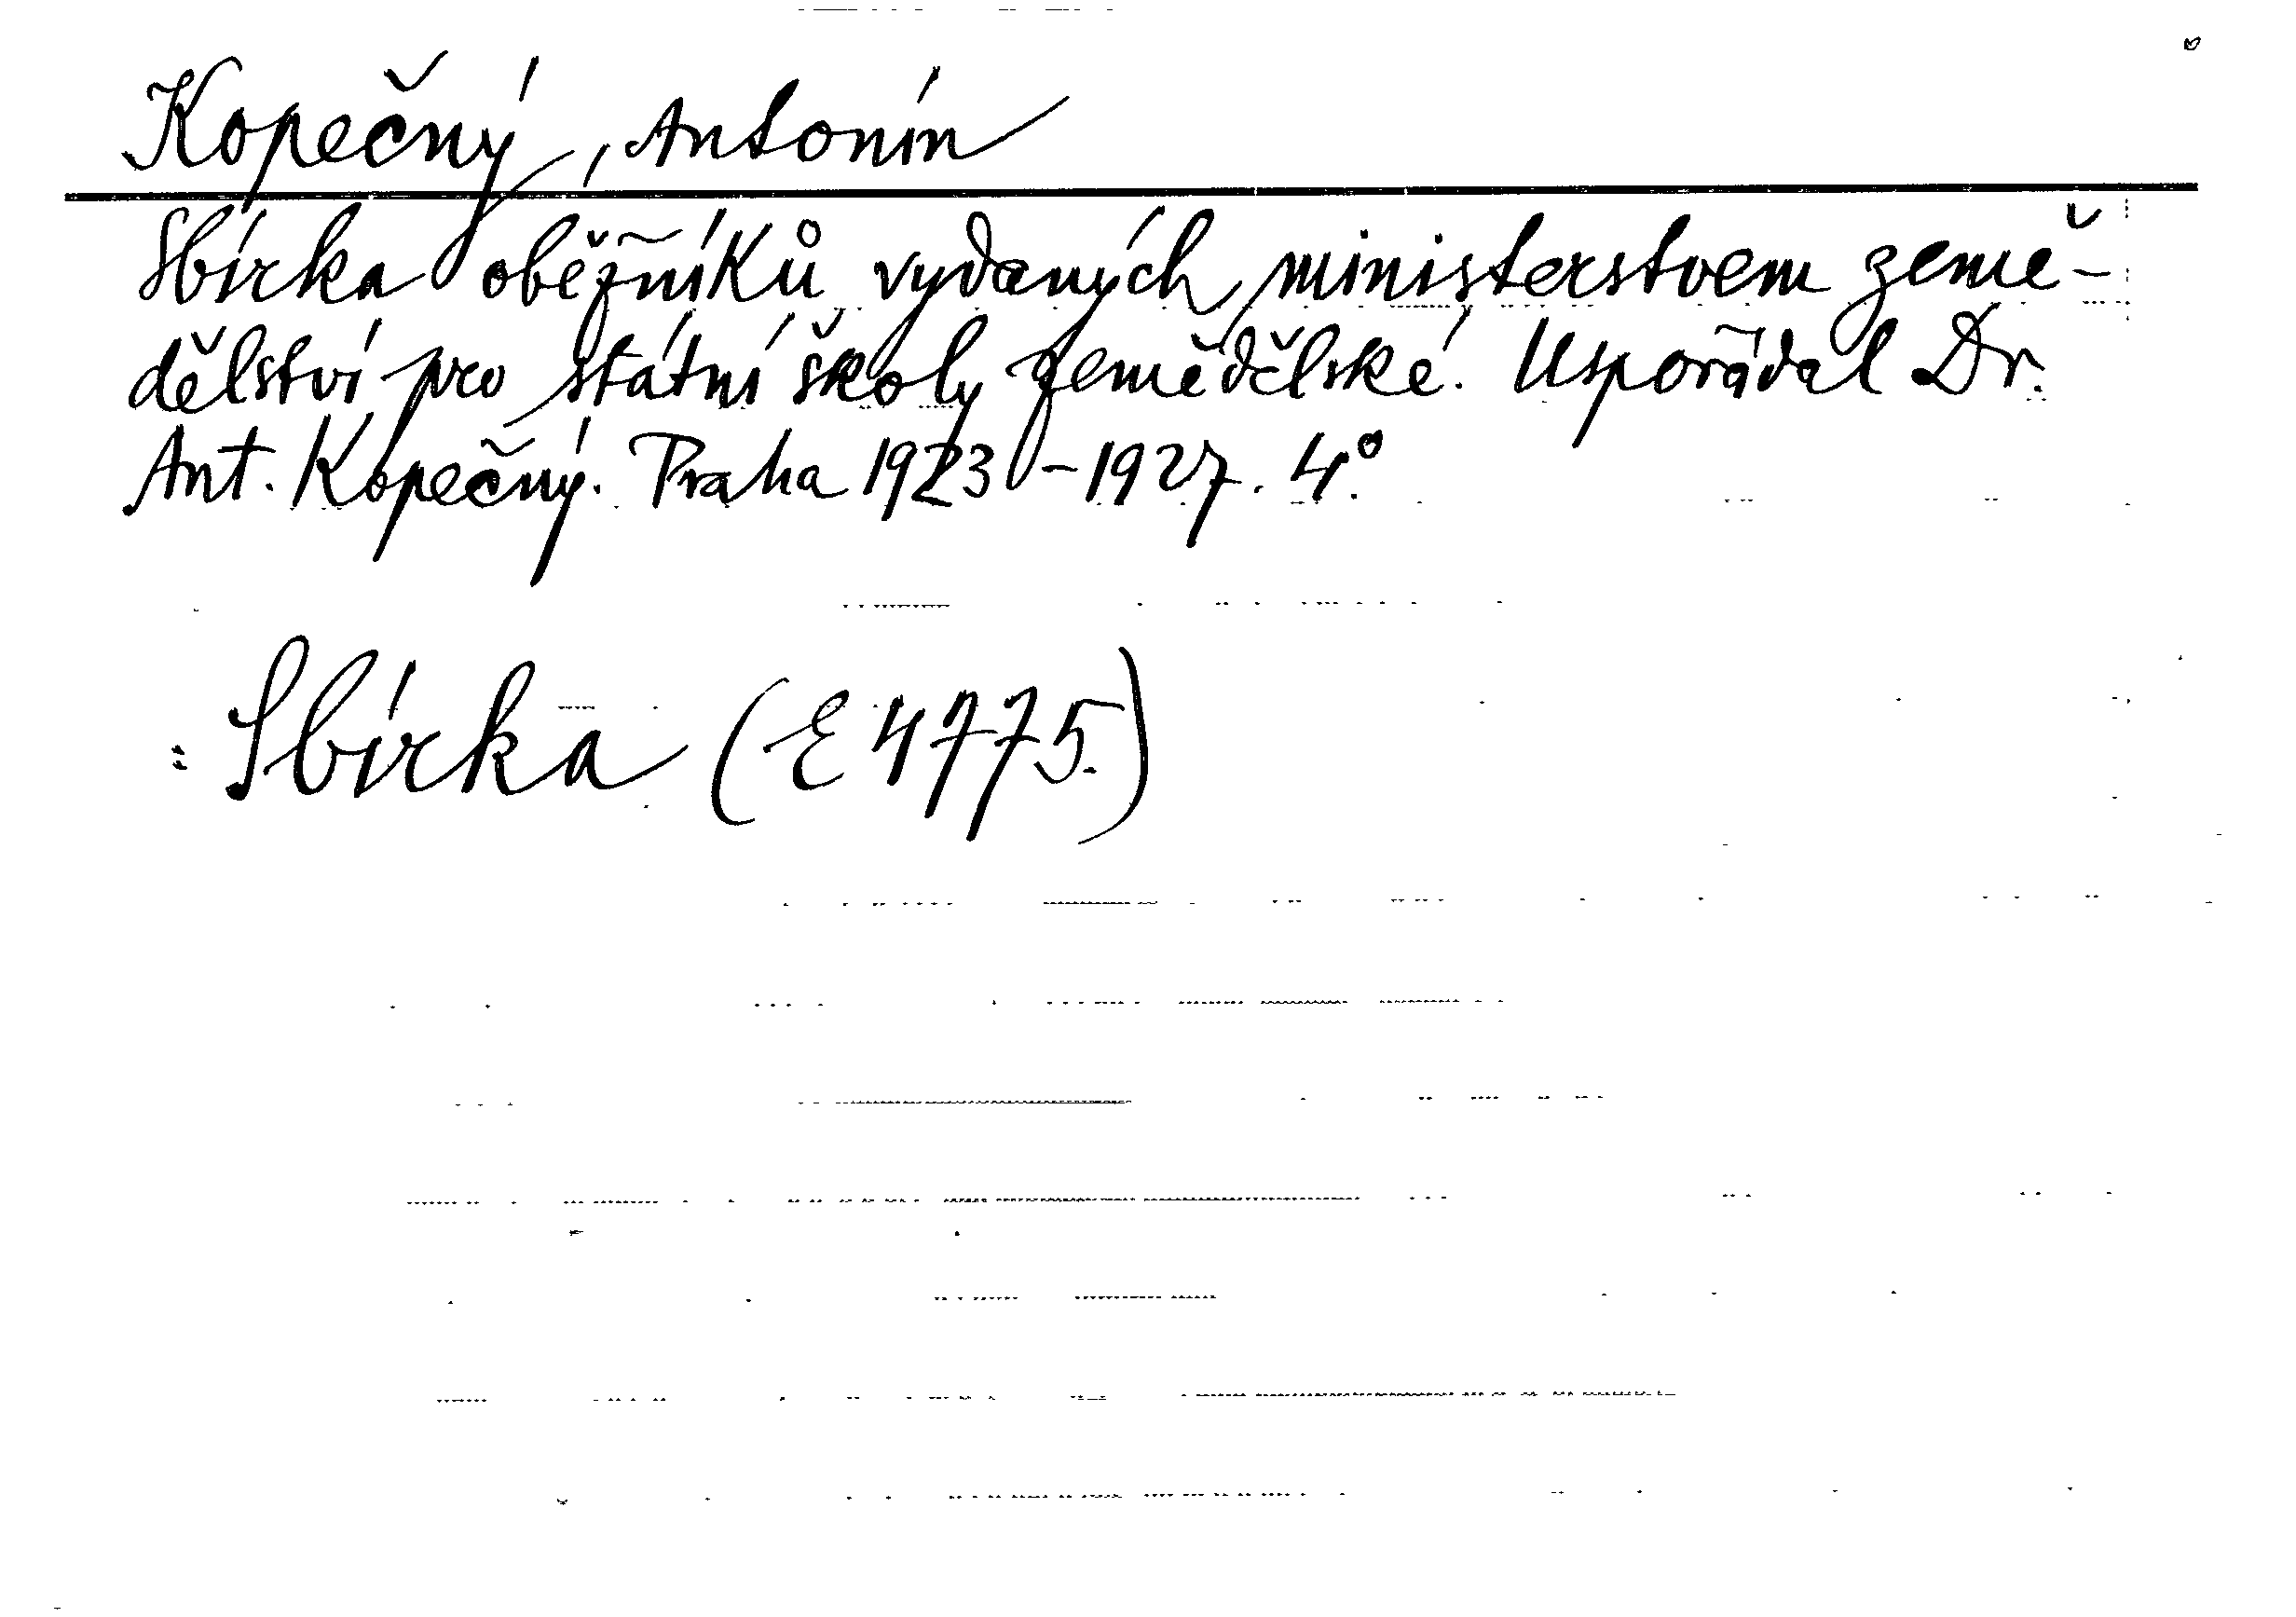 Kopečný, Antonín
Sbírka oběžníků vydaných ministerstvem země-
dělství pro státní školy zemědělské. Uspořádal Dr.
Ant. Kopečný. Praha 1923-1927. 4°.
: Sbírka (E 4775.)